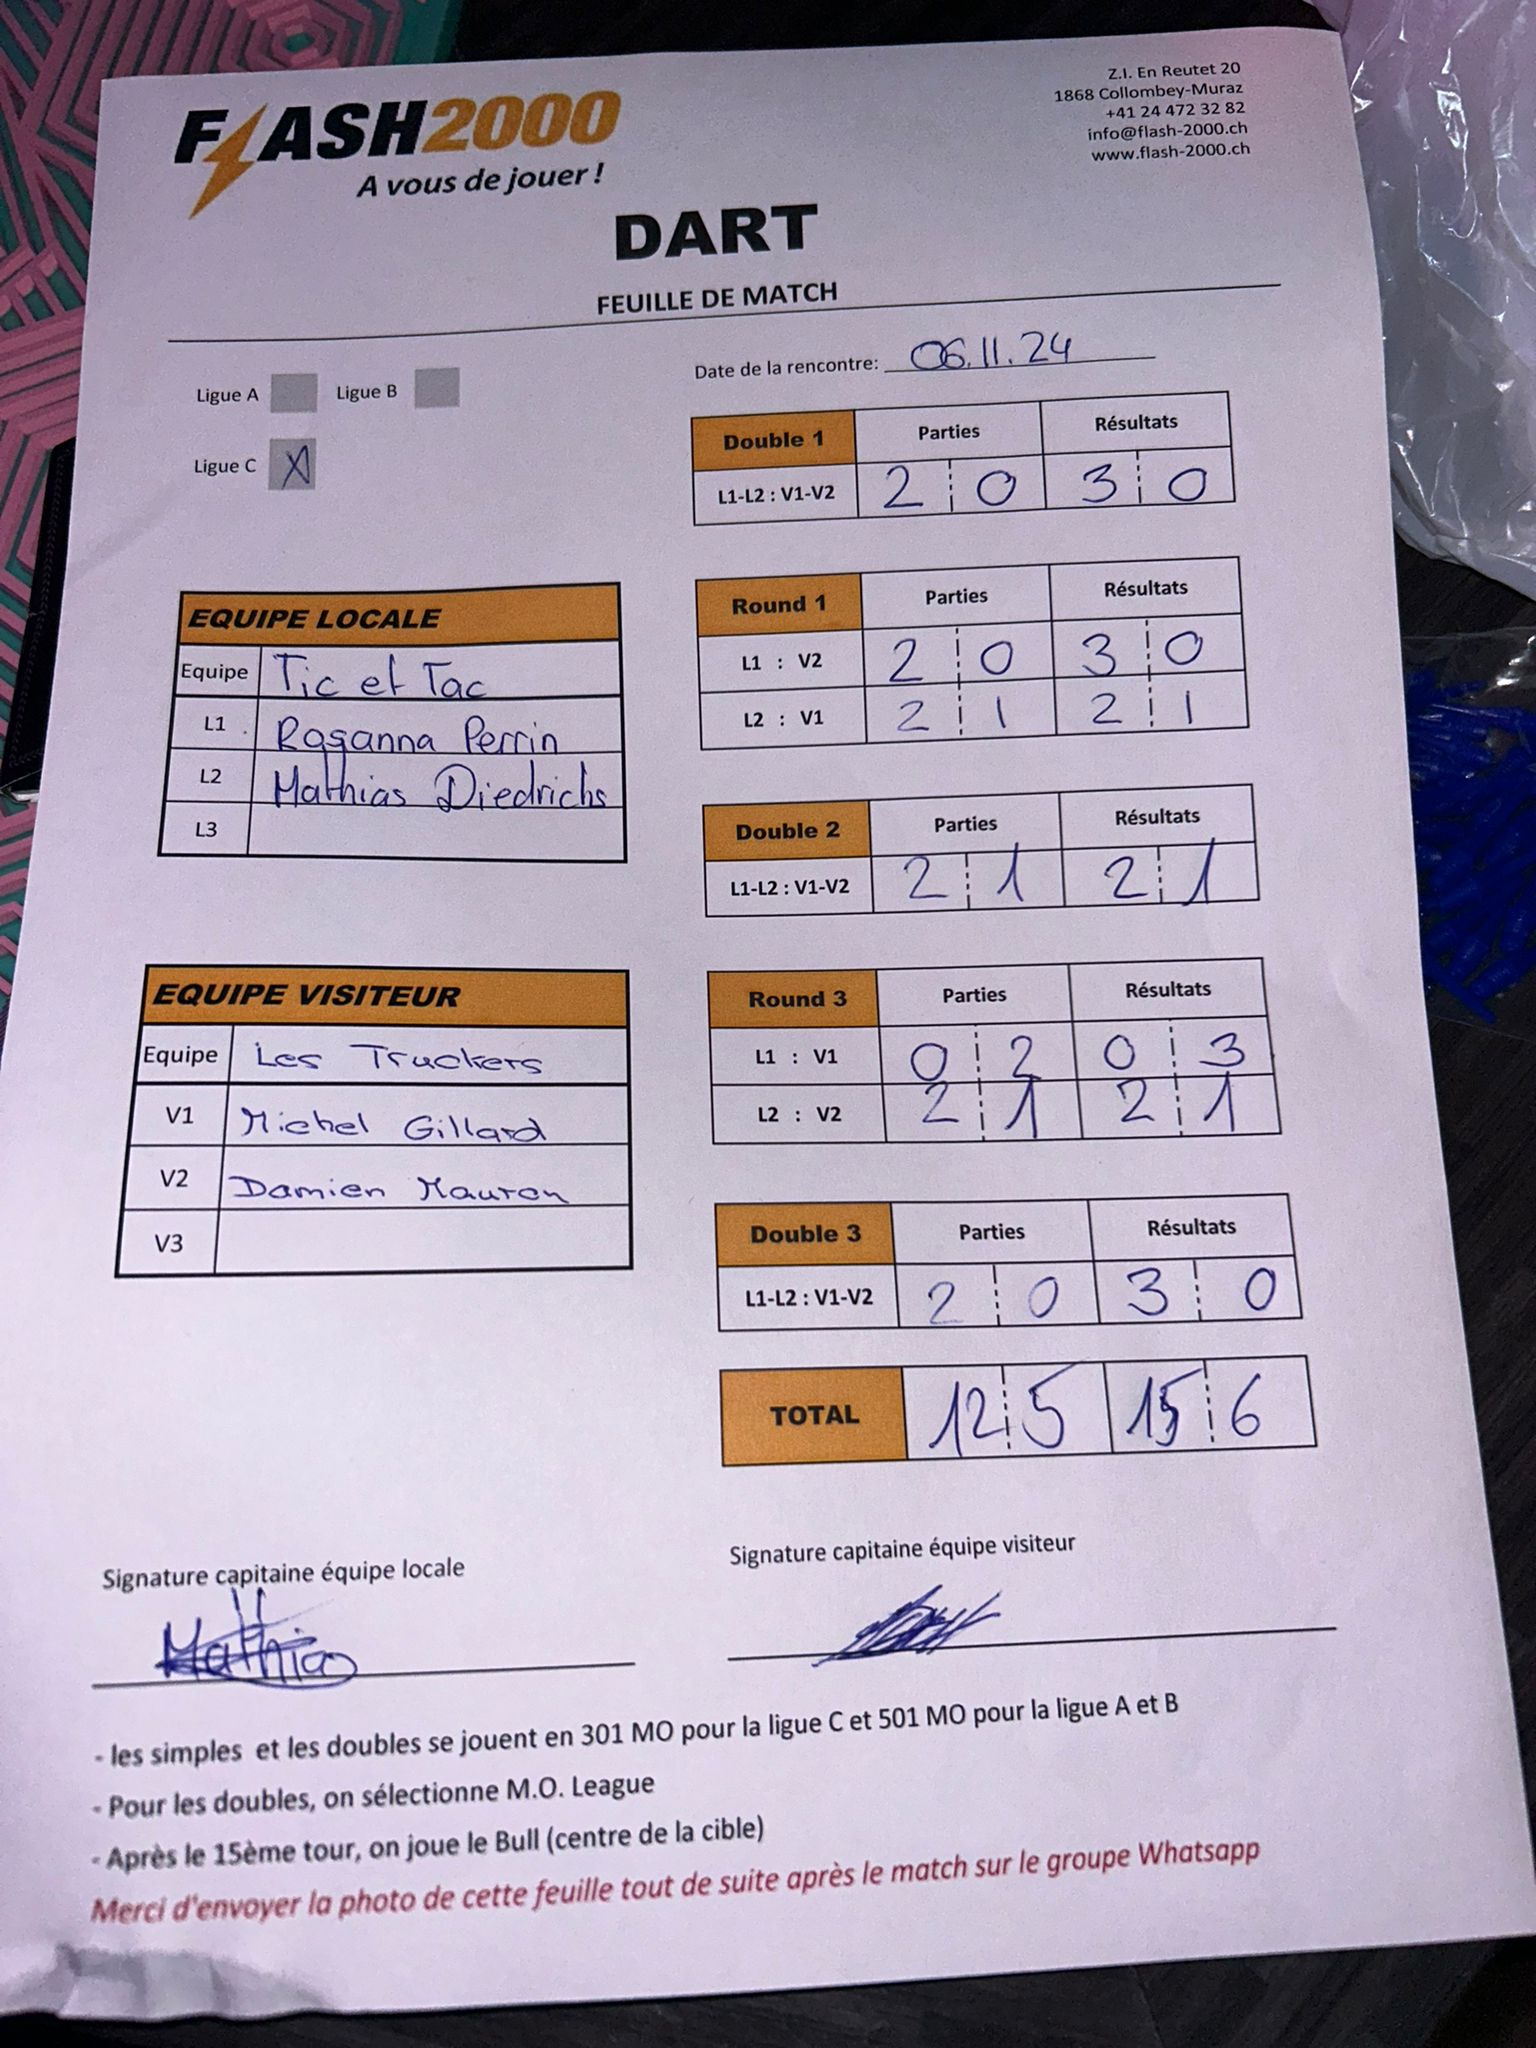 FLASH2000
A vous de jouer !
Z.I. En Reutet 20
1868 Collombey-Muraz
+41 24 472 32 82
info@flash-2000.ch
www.flash-2000.ch
DART
FEUILLE DE MATCH
Ligue A Ligue B
Ligue C X
Date de la rencontre: 06.11.24
Double 1 Parties Résultats
L1-L2 : V1-V2 2 0 3 0
EQUIPE LOCALE
Equipe Tic et Tac
L1 Rosanna Perrin
L2 Mathias Diedrichs
L3
Round 1 Parties Résultats
L1 : V2 2 0 3 0
L2 : V1 2 1 2 1
Double 2 Parties Résultats
L1-L2 : V1-V2 2 1 2 1
EQUIPE VISITEUR
Equipe Les Truckers
V1 Michel Gillard
V2 Damien Mauron
V3
Round 3 Parties Résultats
L1 : V1 0 2 0 3
L2 : V2 2 1 2 1
Double 3 Parties Résultats
L1-L2 : V1-V2 2 0 3 0
TOTAL 12 5 15 6
Signature capitaine équipe locale
Mathias
Signature capitaine équipe visiteur
- les simples et les doubles se jouent en 301 MO pour la ligue C et 501 MO pour la ligue A et B
- Pour les doubles, on sélectionne M.O. League
- Après le 15ème tour, on joue le Bull (centre de la cible)
Merci d'envoyer la photo de cette feuille tout de suite après le match sur le groupe Whatsapp